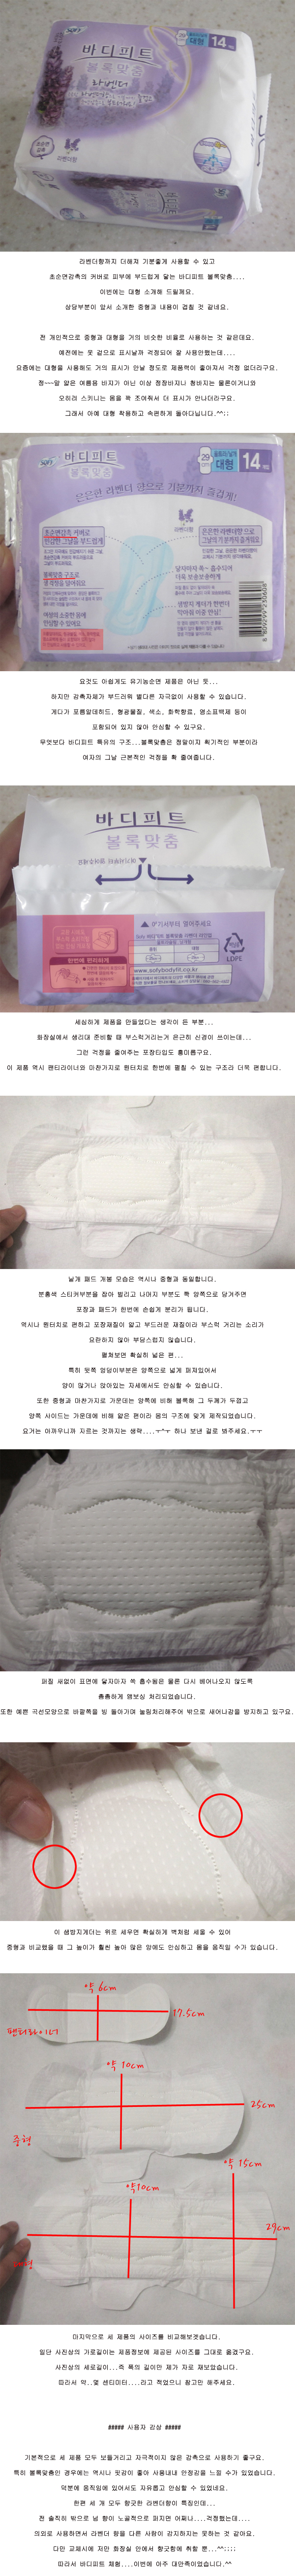 바디피트
볼록맞춤
라벤더
대형
14
라벤더향까지 더해져 기분좋게 사용할 수 있고
초순면감촉의 커버로 피부에 부드럽게 닿는 바디피트 볼록맞춤....
이번에는 대형 소개해 드릴께요.
상당부분이 앞서 소개한 중형과 내용이 겹칠 것 같네요.
전 개인적으로 중형과 대형을 거의 비슷한 비율로 사용하는 것 같은데요.
예전에는 옷 겉으로 표시날까 걱정되어 잘 사용안했는데....
요즘에는 대형을 사용해도 거의 표시가 안날 정도로 제품력이 좋아져서 걱정 없더라구요.
정~~~말 얇은 여름용 바지가 아닌 이상 정장바지나 청바지는 물론이거니와
오히려 스키니는 몸을 꽉 조여줘서 더 표시가 안나더라구요.
그래서 아예 대형 착용하고 속편하게 돌아다닙니다.^^;;
바디피트
볼록맞춤
29
대형
14
은은한 라벤더 향으로 기분까지 즐겁게!
초순면감촉 커버로
민감한 그날도 부드럽게
볼록맞춤구조로
생리혈 걱정을 덜어줘요
라벤더향
요것도 아쉽게도 유기농순면 제품은 아닌 듯...
하지만 감촉자체가 부드러워 별다른 자극없이 사용할 수 있습니다.
게다가 포름알데히드, 형광물질, 색소, 화학향료, 염소표백제 등이
포함되어 있지 않아 안심할 수 있구요.
무엇보다 바디피트 특유의 구조...볼록맞춤은 정말이지 획기적인 부분이라
여자의 그날 근본적인 걱정을 확 줄여줍니다.
바디피트
볼록맞춤
▲ 여기서부터 열어주세요
한번에 편리하게
www.sofybodyfit.co.kr
LDPE
세심하게 제품을 만들었다는 생각이 든 부분...
화장실에서 생리대 준비할 때 부스럭거리는거 은근히 신경이 쓰이는데...
그런 걱정을 줄여주는 포장타입도 흥미롭구요.
이 제품 역시 팬티라이너와 마찬가지로 원터치로 한번에 펼칠 수 있는 구조라 더욱 편합니다.
날개 패드 개봉 모습은 역시나 중형과 동일합니다.
분홍색 스티커부분을 잡아 벌리고 나머지 부분도 쫙 양쪽으로 당겨주면
포장과 패드가 한번에 손쉽게 분리가 됩니다.
역시나 원터치로 편하고 포장재질이 얇고 부드러운 재질이라 부스럭 거리는 소리가
요란하지 않아 부담스럽지 않습니다.
펼쳐보면 확실히 넓은 편...
특히 뒷쪽 엉덩이부분은 양쪽으로 넓게 퍼져있어서
양이 많거나 앉아있는 자세에서도 안심할 수 있습니다.
또한 중형과 마찬가지로 가운데는 양쪽에 비해 볼록해 그 두께가 두껍고
양쪽 사이드는 가운데에 비해 얇은 편이라 몸의 구조에 맞게 제작되었습니다.
요거는 아까우니까 자르는 것까지는 생략....ㅜ^ㅜ 하나 보낸 걸로 봐주세요.ㅜㅜ
퍼질 새없이 표면에 닿자마자 쏙 흡수됨은 물론 다시 베어나오지 않도록
촘촘하게 엠보싱 처리되었습니다.
또한 예쁜 곡선모양으로 바깥쪽을 빙 돌아가며 눌림처리해주어 밖으로 새어나감을 방지하고 있구요.
이 샘방지게더는 위로 세우면 확실하게 벽처럼 세울 수 있어
중형과 비교했을 때 그 높이가 훨씬 높아 많은 양에도 안심하고 몸을 움직일 수가 있습니다.
약 6cm
17.5cm
팬티라이너
약 10cm
25cm
중형
약 15cm
약10cm
29cm
마지막으로 세 제품의 사이즈를 비교해보겟습니다.
일단 사진상의 가로길이는 제품정보에 제공된 사이즈를 그대로 옮겼구요.
사진상의 세로길이...즉 폭의 길이만 제가 자로 재보았습니다.
따라서 약..몇 센티미터....라고 적었으니 참고만 해주세요.
##### 사용자 감상 #####
기본적으로 세 제품 모두 보들거리고 자극적이지 않은 감촉으로 사용하기 좋구요.
특히 볼록맞춤인 경우에는 역시나 핏감이 좋아 사용내내 안정감을 느낄 수가 있었습니다.
덕분에 움직임에 있어서도 자유롭고 안심할 수 있었네요.
한편 세 개 모두 향긋한 라벤더향이 특징인데...
전 솔직히 밖으로 넘 향이 노골적으로 퍼지면 어쩌나....걱정했는데....
의외로 사용하면서 라벤더 향을 다른 사람이 감지하지는 못하는 것 같아요.
다만 교체시에 저만 화장실 안에서 향긋함에 취할 뿐...^^;;;;
따라서 바디피트 체험....이번에 아주 대만족이었습니다.^^